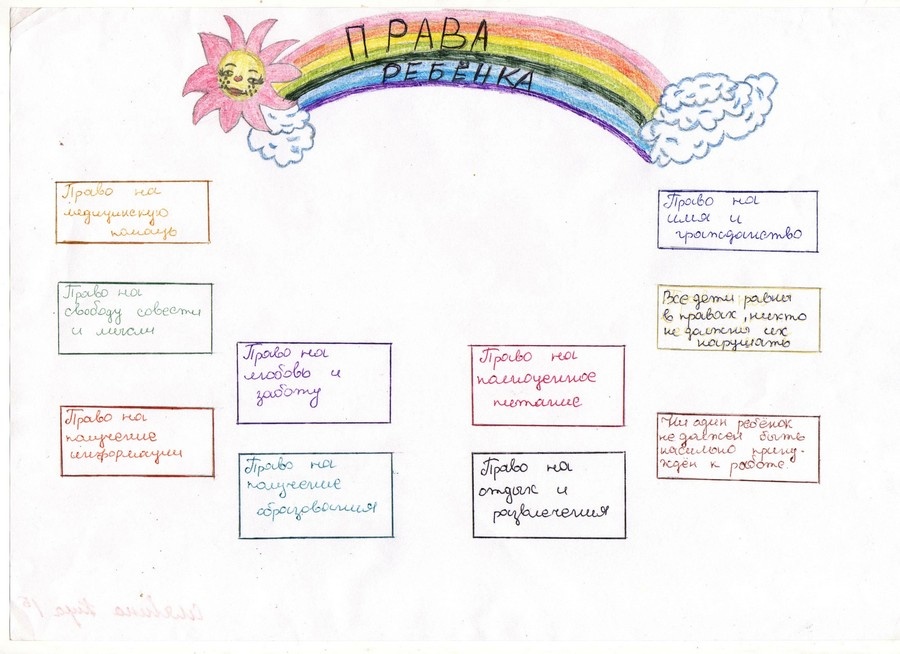 ПРАВА
РЕБЁНКА
Право на
медицинскую
помощь
Право на
свободу совести
и мысли
Право на
получение
информации
Право на
любовь и
заботу
Право на
получение
образования
Право на
полноценное
питание
Право на
отдых и
развлечения
Право на
имя и
гражданство
Все дети равны
в правах, никто
не должны их
нарушать
Ни один ребёнок
не должен быть
насильно прину-
ждён к работе.